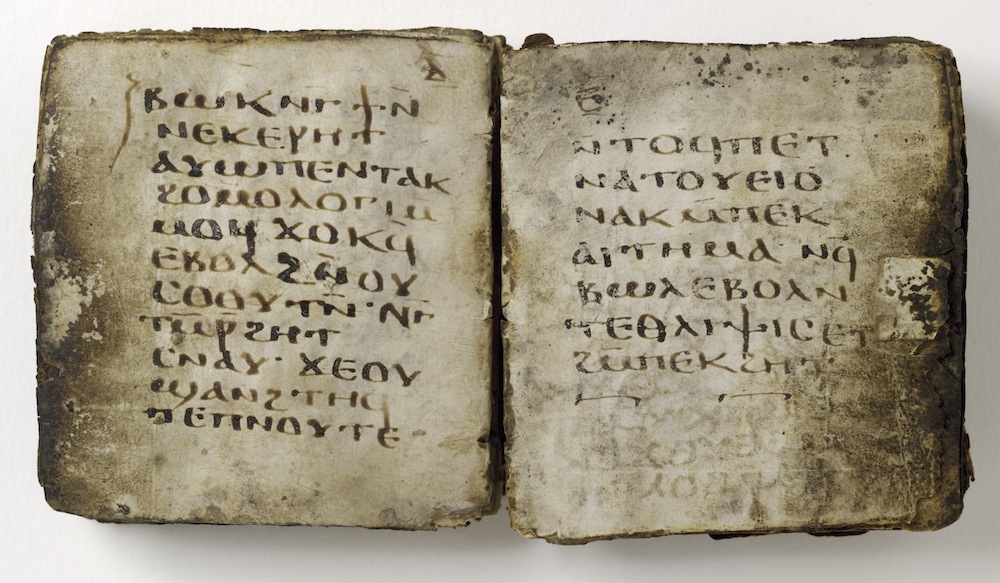 ⲃⲱⲕ ⲛⲅ̄ϯⲛ̄
ⲛⲉⲕⲉⲣⲏⲧ
ⲁⲩⲱ ⲡⲉⲛⲧⲁⲕ
ϩⲟⲙⲟⲗⲟⲅⲓ ⲙ̄
ⲙⲟϥ ϫⲟⲕϥ̄
ⲉⲃⲟⲗ ϩⲛ̄ⲟⲩ
ⲥⲟⲟⲩⲧⲛ̄· ⲛⲅ̄
ⲧⲙ̄ⲣ̄ϩⲏⲧ
ⲥⲛⲁⲩ· ϫⲉⲟⲩ
ϣⲁⲛϩⲧⲏϥ
ⲡⲉ ⲡⲛⲟⲩⲧⲉ·
ⲛ̄ⲧⲟϥ ⲡⲉⲧ
ⲛⲁⲧⲟⲩⲉⲓⲟ
ⲛⲁⲕ ⲙ̄ⲡⲉⲕ
ⲁⲓⲧⲏⲙⲁ· ⲛϥ̄
ⲃⲱⲗ ⲉⲃⲟⲗ ⲛ̄
ⲧⲉⲑⲗⲓⲯⲓⲥ ⲉⲧ
ϩⲙ̄ⲡⲉⲕϩⲏⲧ·